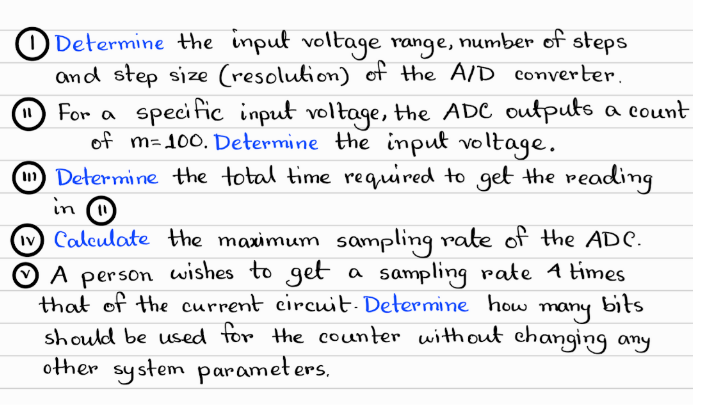 (I) Determine the input voltage range, number of steps
and step size (resolution) of the A/D converter.
(II) For a specific input voltage, the ADC outputs a count
of m=100. Determine the input voltage.
(III) Determine the total time required to get the reading
in (II)
(IV) Calculate the maximum sampling rate of the ADC.
(V) A person wishes to get a sampling rate 4 times
that of the current circuit. Determine how many bits
should be used for the counter without changing any
other system parameters.